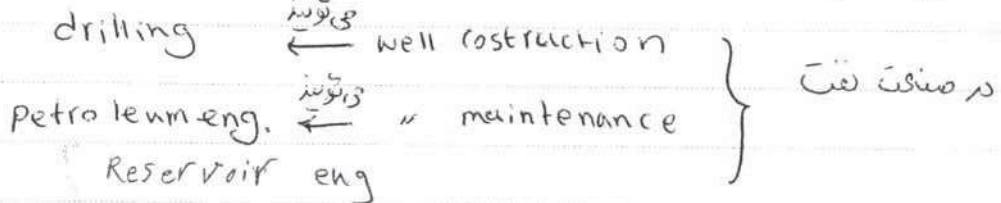 drilling ← می‌گویند well costruction
petroleum eng. ← می‌گویند " maintenance
Reservoir eng
در صنعت نفت